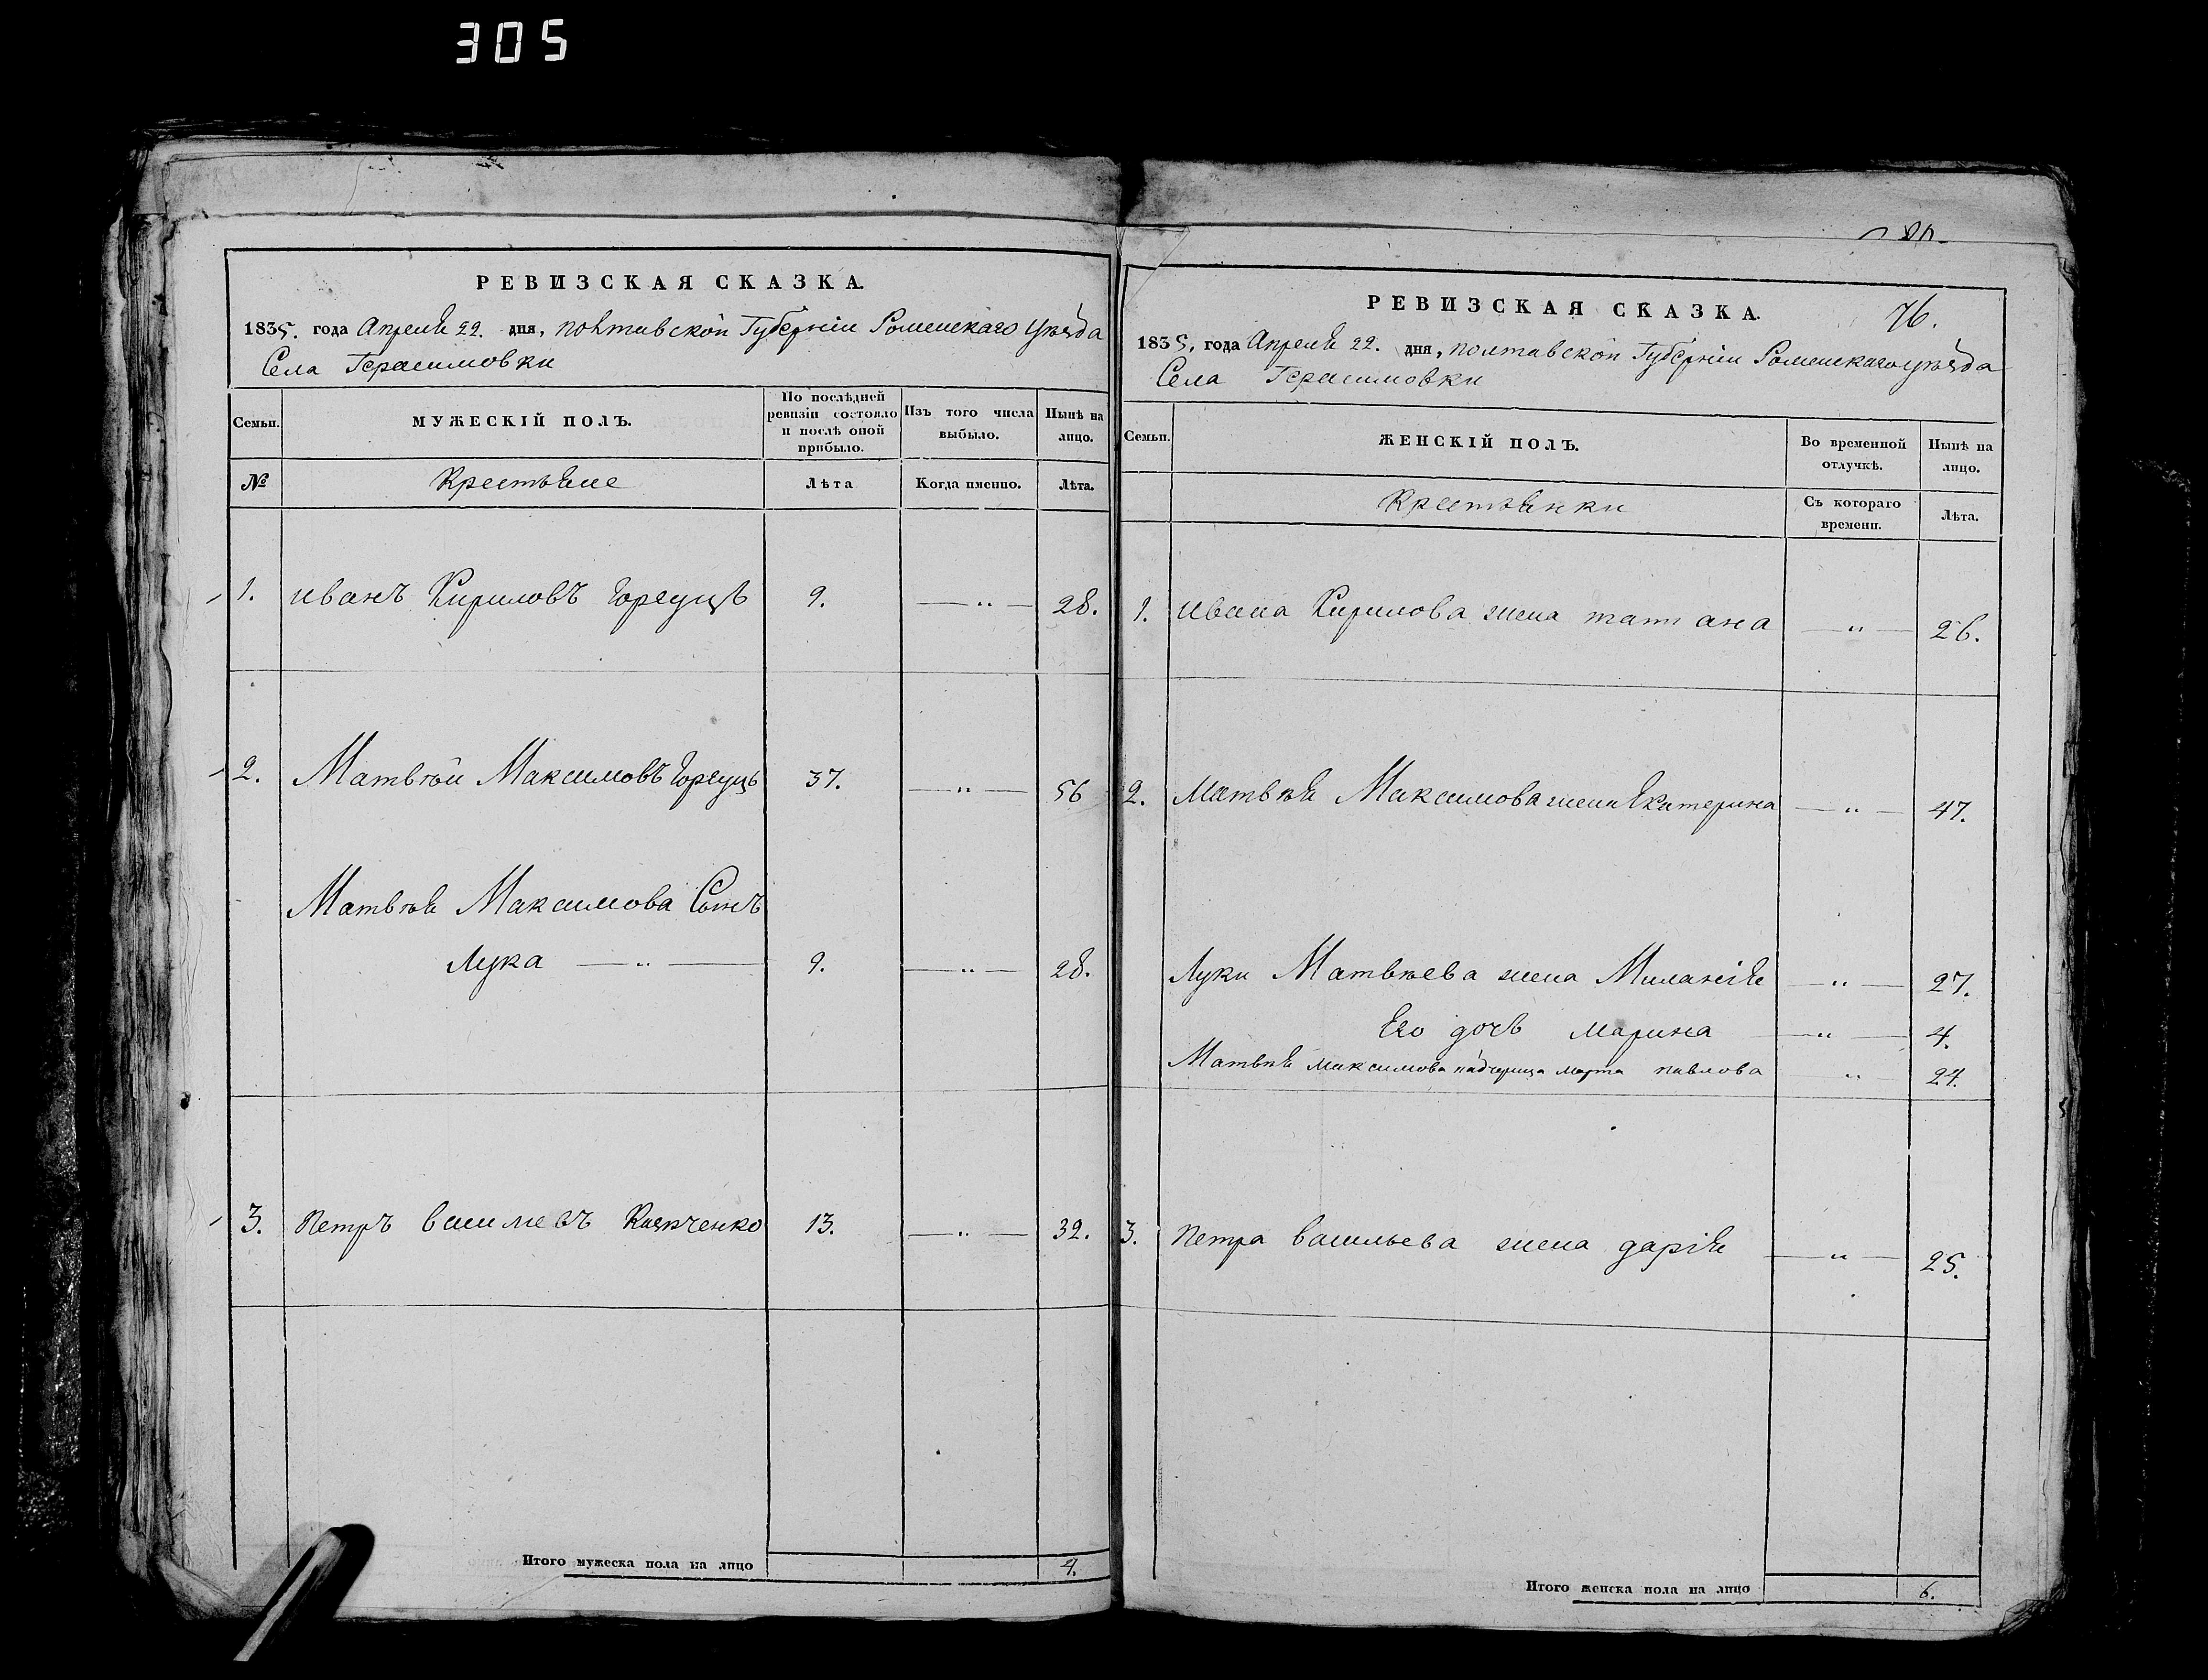 305
РЕВИЗСКАЯ СКАЗКА.
1835. года Апреля 22. дня, полтавской Губерніи Роменскаго уѣзда
Села Герасимовки
Семьи.
МУЖЕСКІЙ ПОЛЪ.
По послѣдней ревизіи состояло и послѣ оной прибыло.
Изъ того числа выбыло.
Нынѣ на лицо.
№
Крестьяне
Лѣта
Когда именно.
Лѣта.
1. иванъ Кириловъ Горяуць 9. — " — 28.
2. Матвѣй Максимовъ 37. — " — 56
Матвѣя Максимова Сынъ
Лука — " — 9. — " — 28.
3. Петръ васильевъ 13. — " — 32.
Итого мужеска пола на лицо 4.
76.
РЕВИЗСКАЯ СКАЗКА.
1835, года Апреля 22. дня, полтавской Губерніи Роменскаго уѣзда
Села Герасимовки
Семьи.
ЖЕНСКІЙ ПОЛЪ.
Во временной отлучкѣ.
Нынѣ на лицо.
Крестьянки
Съ котораго времени.
Лѣта.
1. ивана Кирилова жена татіана — " — 26.
2. Матвѣя Максимова жена Екатерина — " — 47.
Луки Матвѣева жена Миланія — " — 27.
Его дочь Марина — " — 4.
Матвѣя Максимова падчерица Марта павлова " 27.
3. Петра васильева жена дарія — " — 25.
Итого женска пола на лицо 6.